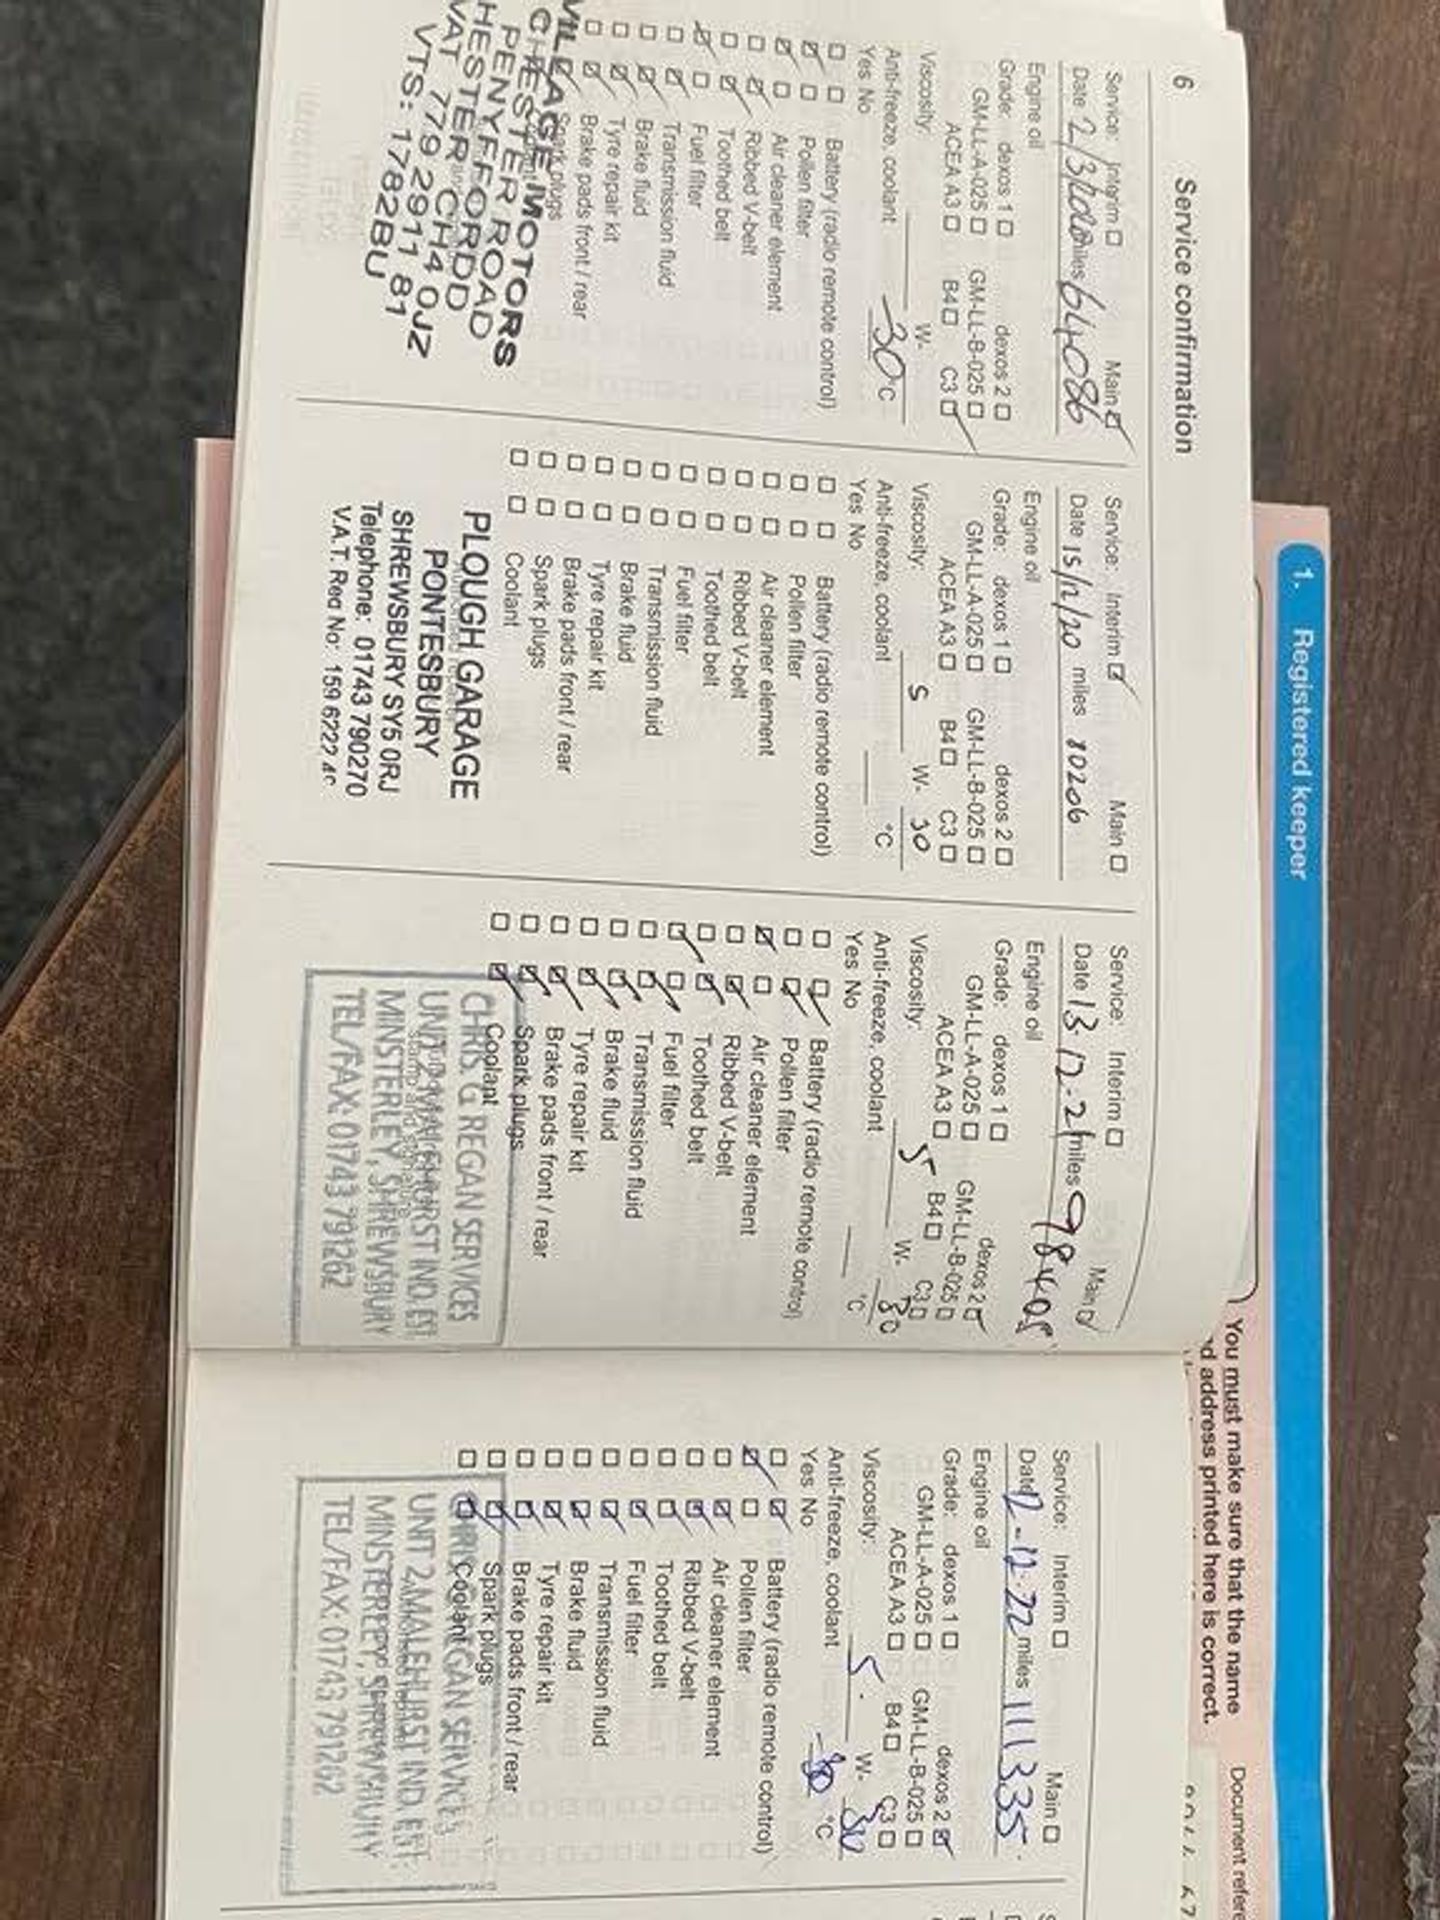 6 Service confirmation
Service: Interim ☐ Main ☑
Date 2/3/20 miles 64086
Engine oil
Grade: dexos 1 ☐ dexos 2 ☐
GM-LL-A-025 ☐ GM-LL-B-025 ☐
ACEA A3 ☐ B4 ☐ C3 ☑
Viscosity: W-
Anti-freeze, coolant -30 °C
Yes No
☐ ☐ Battery (radio remote control)
☑ ☐ Pollen filter
☑ ☐ Air cleaner element
☐ ☑ Ribbed V-belt
☐ ☑ Toothed belt
☑ ☐ Fuel filter
☐ ☑ Transmission fluid
☐ ☑ Brake fluid
☐ ☑ Tyre repair kit
☐ ☑ Brake pads front / rear
Spark plugs
VILLAGE MOTORS
CHESTER ROAD
PENYFFORDD
CHESTER CH4 0JZ
VAT 779 2911 81
VTS: 1782BU
Service: Interim ☑ Main ☐
Date 15/12/20 miles 80206
Engine oil
Grade: dexos 1 ☐ dexos 2 ☐
GM-LL-A-025 ☐ GM-LL-B-025 ☐
ACEA A3 ☐ B4 ☐ C3 ☐
Viscosity: 5 W- 30
Anti-freeze, coolant °C
Yes No
☐ ☐ Battery (radio remote control)
☐ ☐ Pollen filter
☐ ☐ Air cleaner element
☐ ☐ Ribbed V-belt
☐ ☐ Toothed belt
☐ ☐ Fuel filter
☐ ☐ Transmission fluid
☐ ☐ Brake fluid
☐ ☐ Tyre repair kit
☐ ☐ Brake pads front / rear
☐ ☐ Spark plugs
☐ ☐ Coolant
PLOUGH GARAGE
PONTESBURY
SHREWSBURY SY5 0RJ
Telephone: 01743 790270
V.A.T. Reg No: 159 6222
Service: Interim ☐ Main ☑
Date 13.12.21 miles 98408
Engine oil
Grade: dexos 1 ☐ dexos 2 ☑
GM-LL-A-025 ☐ GM-LL-B-025 ☐
ACEA A3 ☐ B4 ☐ C3 ☐
Viscosity: 5 W- 30
Anti-freeze, coolant °C
Yes No
☐ ☑ Battery (radio remote control)
☐ ☑ Pollen filter
☑ ☐ Air cleaner element
☐ ☑ Ribbed V-belt
☐ ☑ Toothed belt
☑ ☐ Fuel filter
☐ ☑ Transmission fluid
☐ ☑ Brake fluid
☐ ☑ Tyre repair kit
☐ ☑ Brake pads front / rear
☐ ☑ Spark plugs
☐ ☑ Coolant
CHRIS G REGAN SERVICES
UNIT 2 MALEHURST IND. EST.
MINSTERLEY, SHREWSBURY
TEL/FAX: 01743 791262
Service: Interim ☐ Main ☐
Date 12-12-22 miles 111335
Engine oil
Grade: dexos 1 ☐ dexos 2 ☑
GM-LL-A-025 ☐ GM-LL-B-025 ☐
ACEA A3 ☐ B4 ☐ C3 ☐
Viscosity: 5 W- 30
Anti-freeze, coolant °C
Yes No
☐ ☑ Battery (radio remote control)
☑ ☐ Pollen filter
☐ ☑ Air cleaner element
☐ ☑ Ribbed V-belt
☐ ☑ Toothed belt
☐ ☑ Fuel filter
☐ ☑ Transmission fluid
☐ ☑ Brake fluid
☐ ☑ Tyre repair kit
☐ ☑ Brake pads front / rear
☐ ☑ Spark plugs
☐ ☑ Coolant
CHRIS G REGAN SERVICES
UNIT 2 MALEHURST IND. EST.
MINSTERLEY, SHREWSBURY
TEL/FAX: 01743 791262
1. Registered keeper
You must make sure that the name
address printed here is correct.
Document